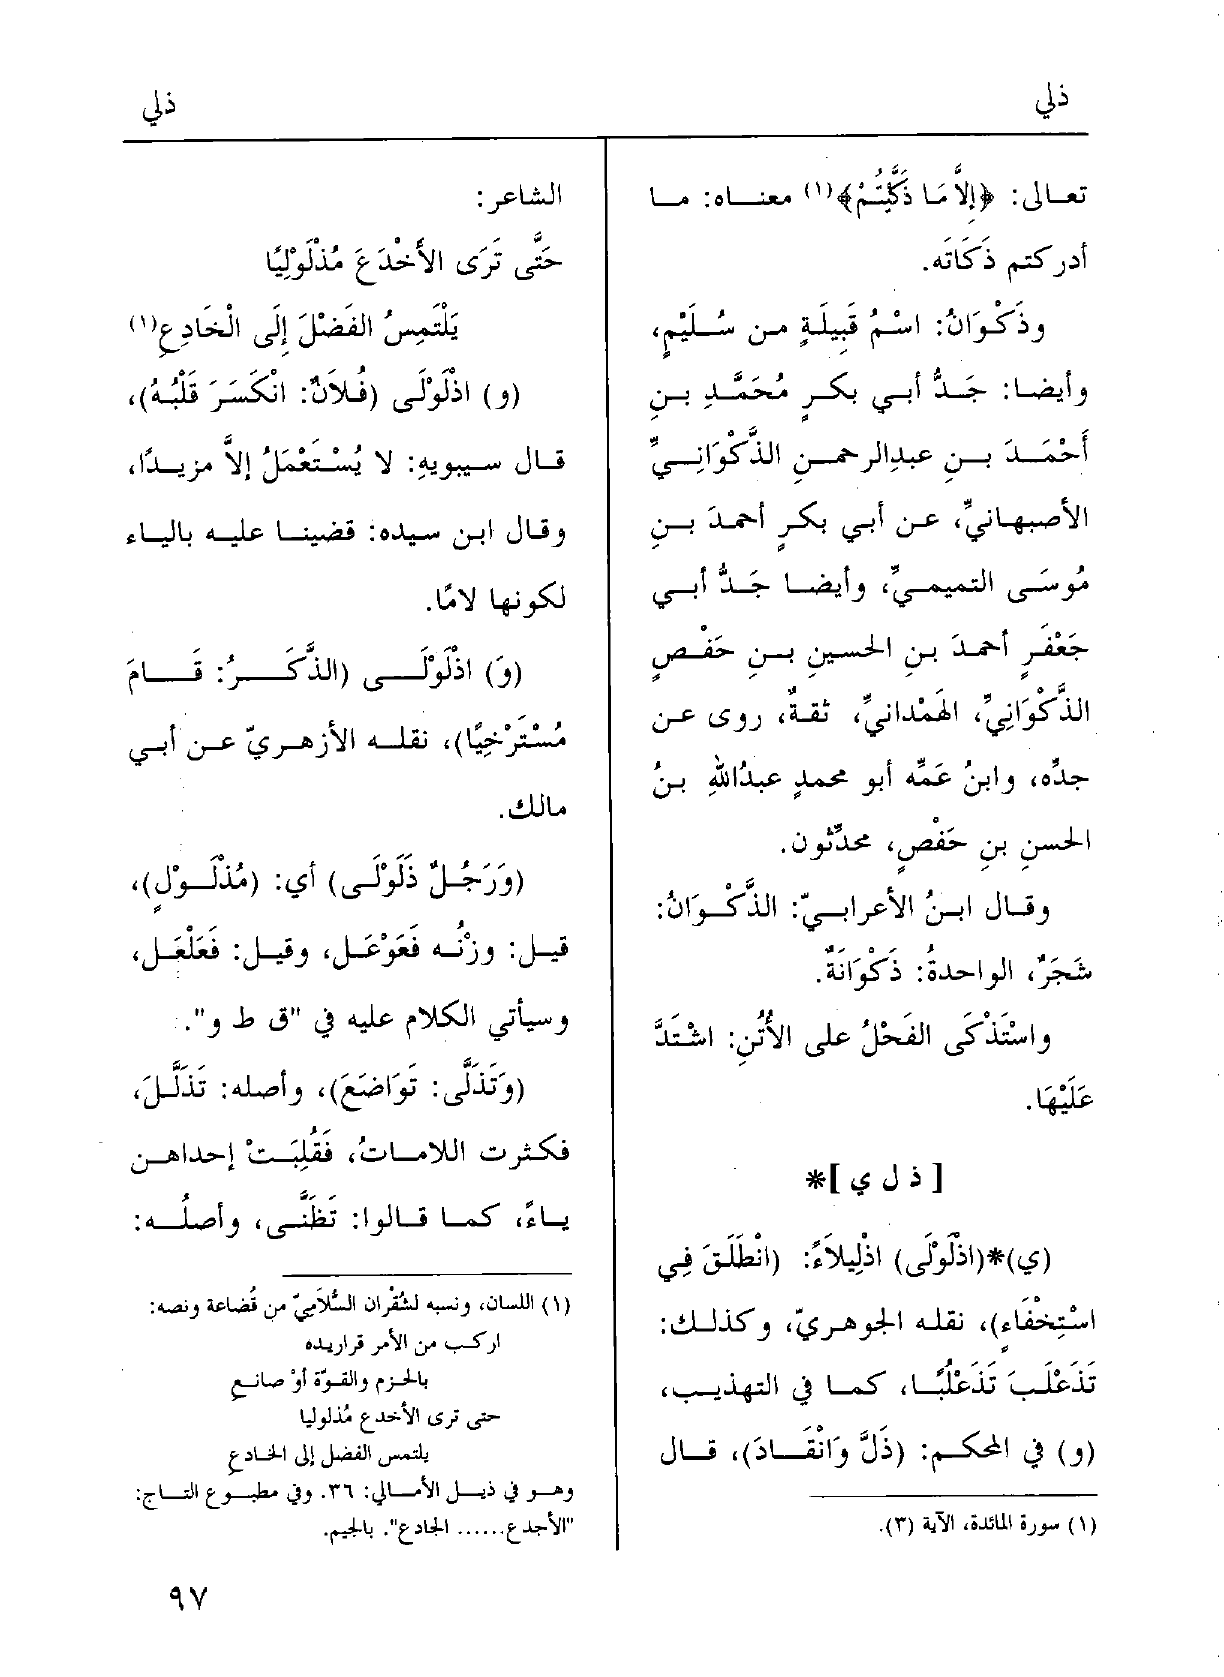 ذلي
ذلي
تعالى: ﴿إِلاَّ مَا ذَكَّيْتُمْ﴾(١) معناه: ما
أدركتم ذَكَاتَه.
وذَكْوَانُ: اسْمُ قَبِيلَةٍ من سُلَيْمٍ،
وأيضا: جَدُّ أبي بكرٍ مُحَمَّدِ بنِ
أَحْمَدَ بنِ عبدِالرحمنِ الذَّكْوَانِيِّ
الأصبهانيِّ، عن أبي بكرٍ أحمدَ بنِ
مُوسَى التميميِّ، وأيضا جَدُّ أبي
جَعْفَرٍ أحمدَ بنِ الحسينِ بنِ حَفْصٍ
الذَّكْوَانِيِّ، الهَمْدانيِّ، ثقةٌ، روى عن
جدِّه، وابنُ عَمِّه أبو محمدٍ عبدُاللهِ بنُ
الحسنِ بنِ حَفْصٍ، محدِّثون.
وقال ابنُ الأعرابيّ: الذَّكْوَانُ:
شَجَرٌ، الواحدةُ: ذَكْوَانَةٌ.
واسْتَذْكَى الفَحْلُ على الأُتُنِ: اشْتَدَّ
عَلَيْهَا.
[ذ ل ي]*
(ي)*(اذْلَوْلَى) اذْلِيلاَءً: (انْطَلَقَ فِي
اسْتِخْفَاءٍ)، نقله الجوهريّ، وكذلك:
تَذَعْلَبَ تَذَعْلُبًا، كما في التهذيب،
(و) في المحكم: (ذَلَّ وَانْقَادَ)، قال
(١) سورة المائدة، الآية (٣).
الشاعر:
حَتَّى تَرَى الأَخْدَعَ مُذْلَوْلِيًا
يَلْتَمِسُ الفَضْلَ إِلَى الْخَادِعِ(١)
(و) اذْلَوْلَى (فُلاَنٌ: انْكَسَرَ قَلْبُهُ)،
قال سيبويهِ: لا يُسْتَعْمَلُ إلاَّ مزيدًا،
وقال ابن سيده: قضينا عليه بالياء
لكونها لامًا.
(وَ) اذْلَوْلَى (الذَّكَرُ: قَامَ
مُسْتَرْخِيًا)، نقله الأزهريّ عن أبي
مالك.
(وَرَجُلٌ ذَلَوْلَى) أي: (مُذْلَوْلٍ)،
قيل: وزْنُه فَعَوْعَل، وقيل: فَعَلْعَل،
وسيأتي الكلام عليه في "ق ط و".
(وَتَذَلَّى: تَوَاضَعَ)، وأصله: تَذَلَّلَ،
فكثرت اللاماتُ، فَقُلِبَتْ إحداهن
ياءً، كما قالوا: تَظَنَّى، وأصلُه:
(١) اللسان، ونسبه لشُقْران السُّلَامِيّ من قُضاعة ونصه:
اركب من الأمر قراريده
بالحزم والقوّة أوْ صانع
حتى ترى الأخدع مُذلوليا
يلتمس الفضل إلى الخادع
وهو في ذيل الأمالي: ٣٦. وفي مطبوع التاج:
"الأجدع...... الجادع". بالجيم.
٩٧